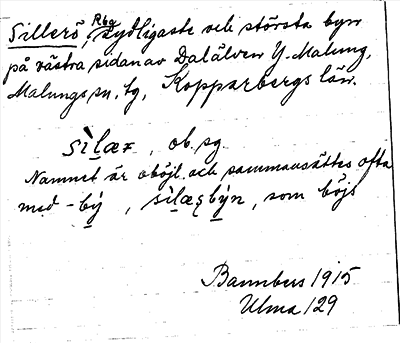 Sillerö, Rbg
sydligaste och största byn
på västra sidan av Dalälven Y. Malung,
Malungs sn, tg, Kopparbergs län.
sìlær, ob. sg
Namnet är oböjl. och sammansättes ofta
med -bý, sìlæʂbýn, som böjs
Bannbers 1915
Ulma 129